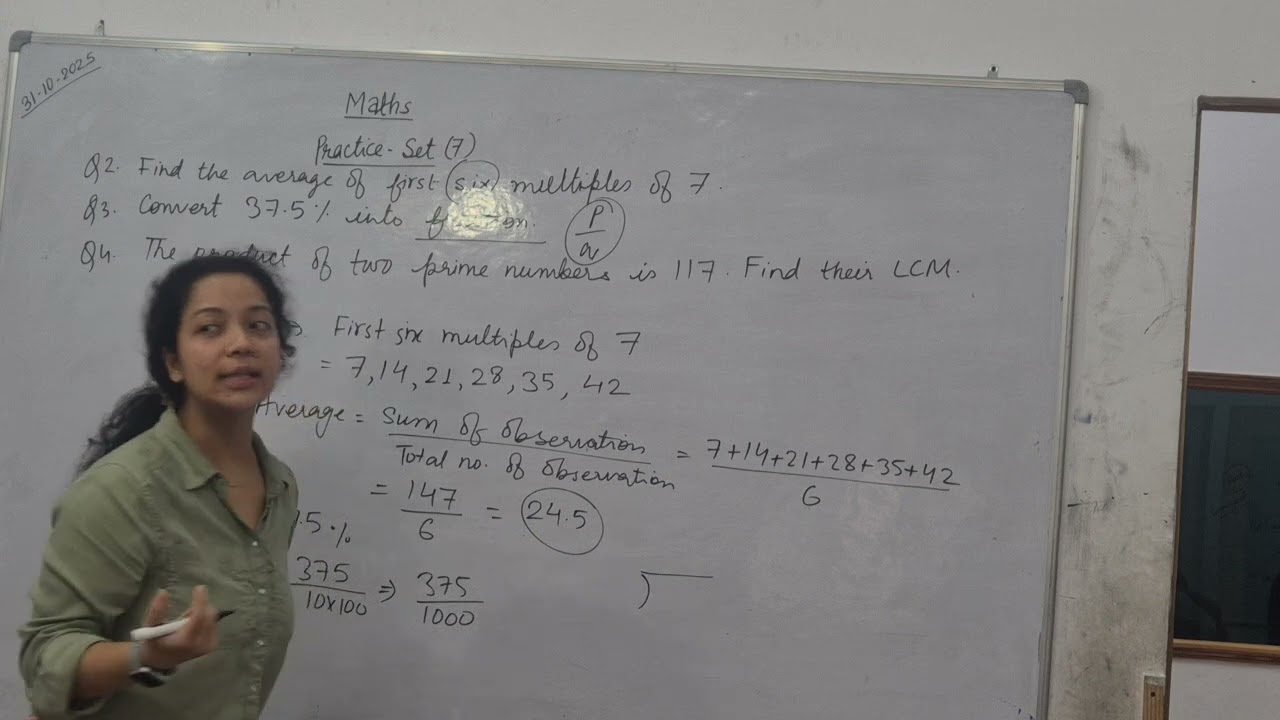 31-10-2025
Maths
Practice-Set (7)
Q2. Find the average of first six multiples of 7.
Q3. Convert 37.5% into P/q
Q4. The product of two prime numbers is 117. Find their LCM.
First six multiples of 7
= 7, 14, 21, 28, 35, 42
Average = Sum of observation / Total no. of observation = 7+14+21+28+35+42 / 6
= 147/6 = 24.5
.5%
375/10x100 ⇒ 375/1000